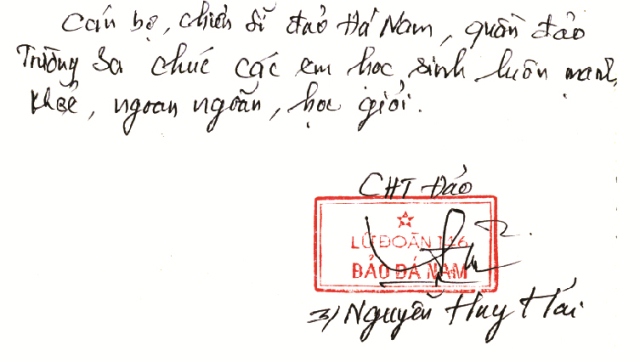 Cán bộ, chiến sĩ đảo Đá Nam, quần đảo
Trường Sa chúc các em học sinh luôn mạnh
khoẻ, ngoan ngoãn, học giỏi.
CHT Đảo
LỮ ĐOÀN 146
ĐẢO ĐÁ NAM
3/ Nguyễn Huy Hải